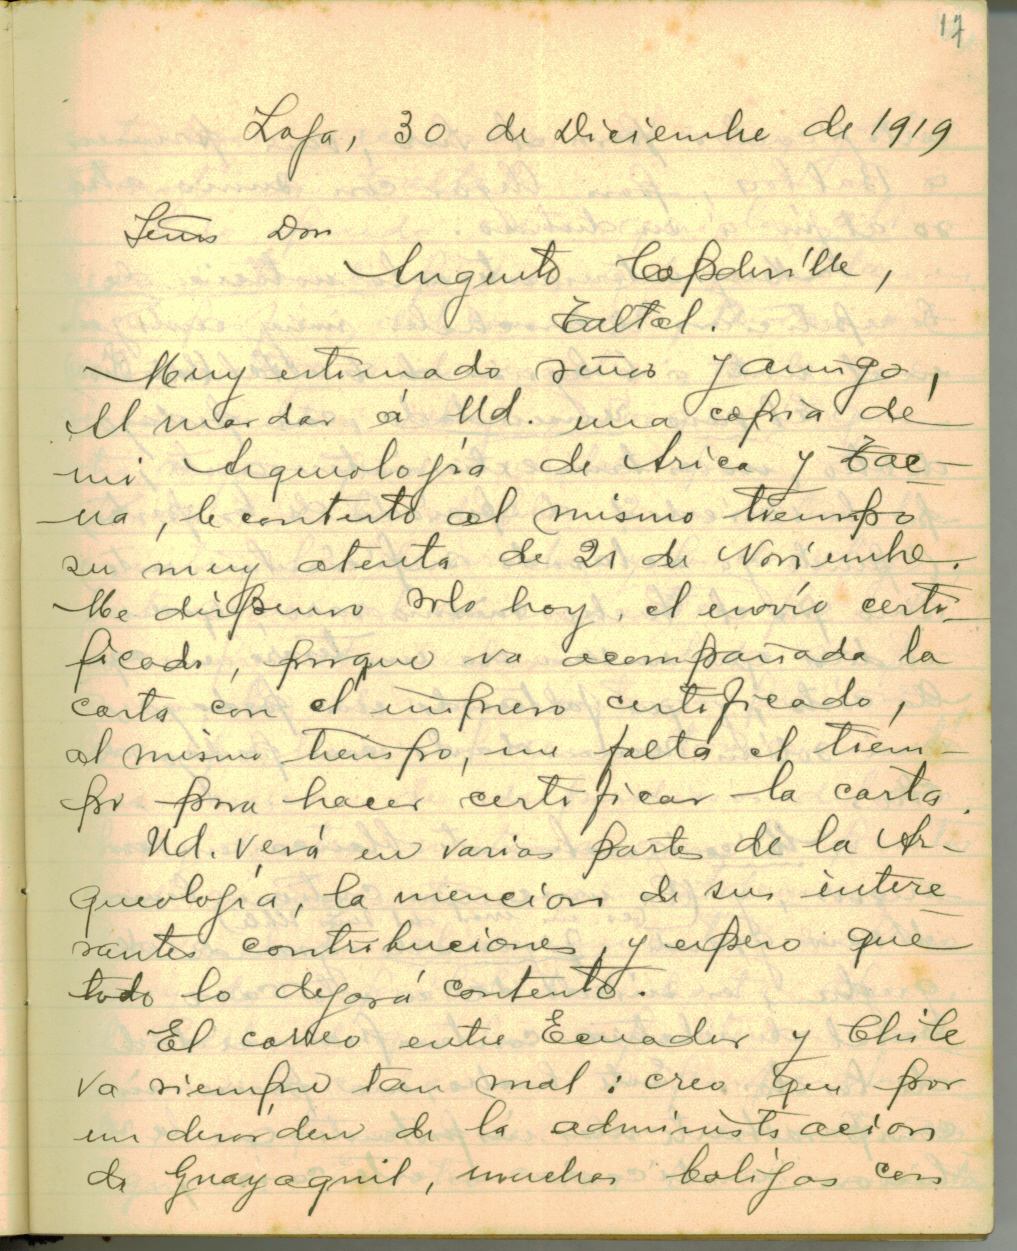 17
Loja, 30 de Diciembre de 1919
Señor Don
Augusto Capdeville,
Taltal.
Muy estimado señor y amigo,
Al mandar á Ud. una copia de
mi Arqueología de Arica y Tac-
na, le contesto al mismo tiempo
su muy atenta de 21 de Noviembre.
Me dispenso solo hoy, el envío certi-
ficado, porque va acompañada la
carta con el impreso certificado,
al mismo tiempo, me falta el tiem-
po para hacer certificar la carta.
Ud. verá en varias partes de la Ar-
queología, la mencion de sus intere-
santes contribuciones, y espero que
todo lo dejará contento.
El correo entre Ecuador y Chile
va siempre tan mal: creo que por
un desorden de la administracion
de Guayaquil, muchas balijas con